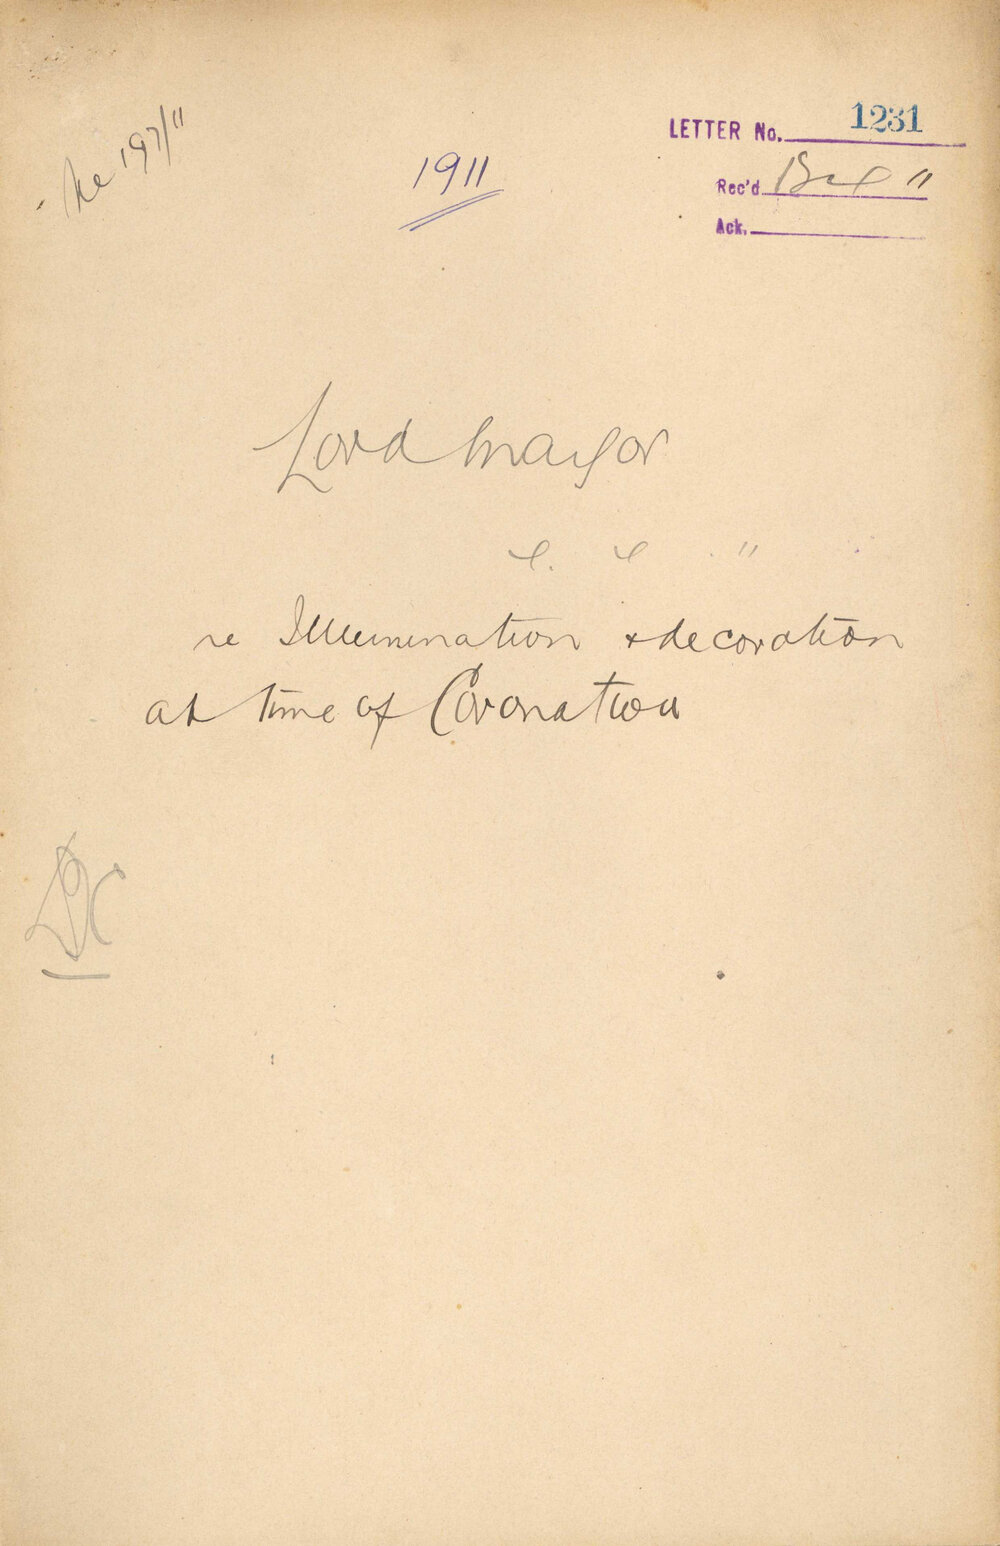 197/11
1911
LETTER No. 1231
Rec'd 11
Ack.
Lord Mayor
"
re Illumination & decoration
at time of Coronation